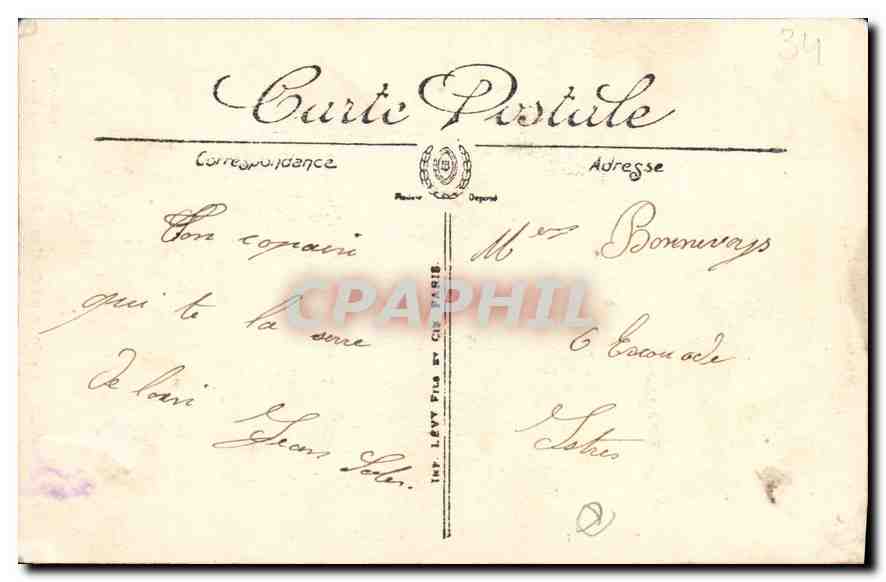 34
Carte Postale
Correspondance
Adresse
Ton copain
qui te la
serre
de loin
Jean
Mer
6 Escouade
Istres
IMP. LÉVY FILS ET CIE PARIS.
CPAPHIL